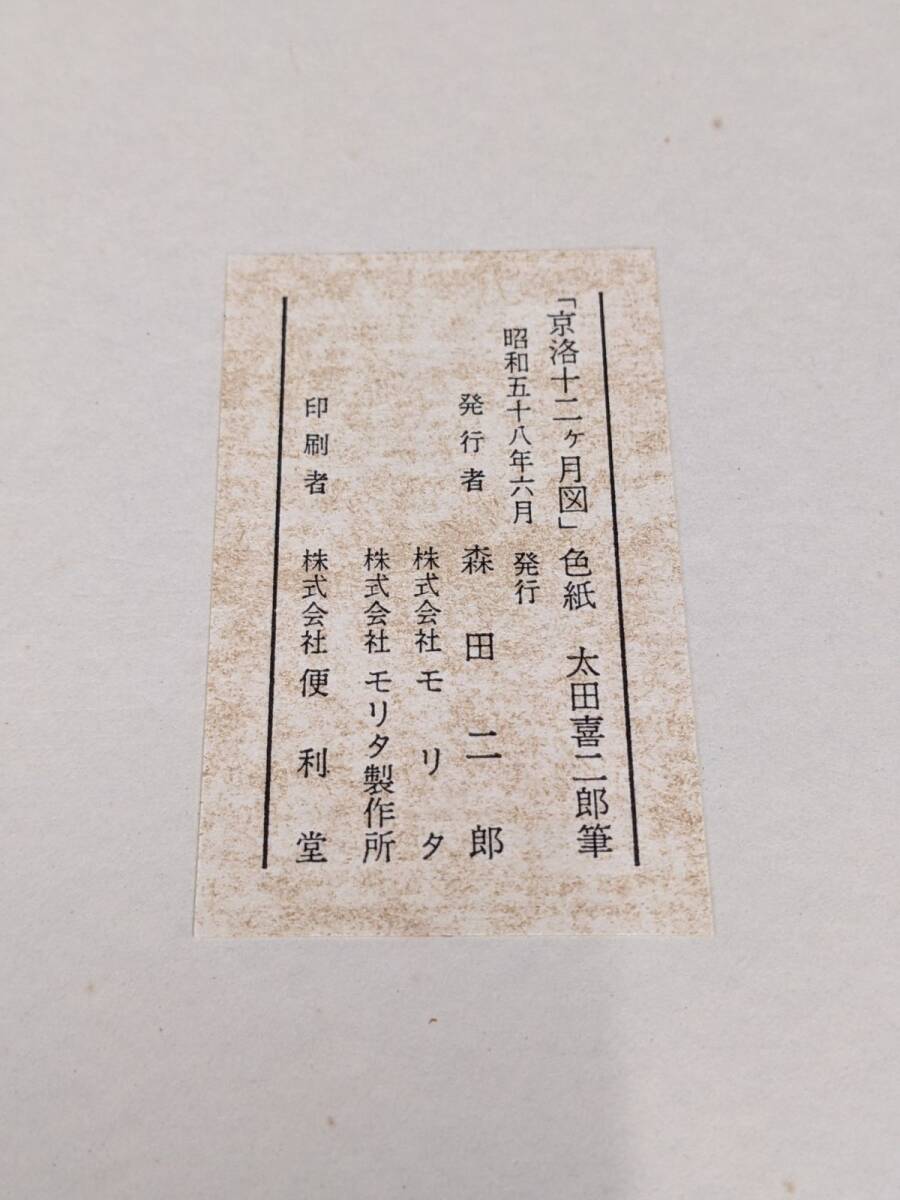 「京洛十二ヶ月図」色紙　太田喜二郎筆
昭和五十八年六月　発行
発行者　森田二郎
株式会社モリタ
株式会社モリタ製作所
印刷者　株式会社便利堂